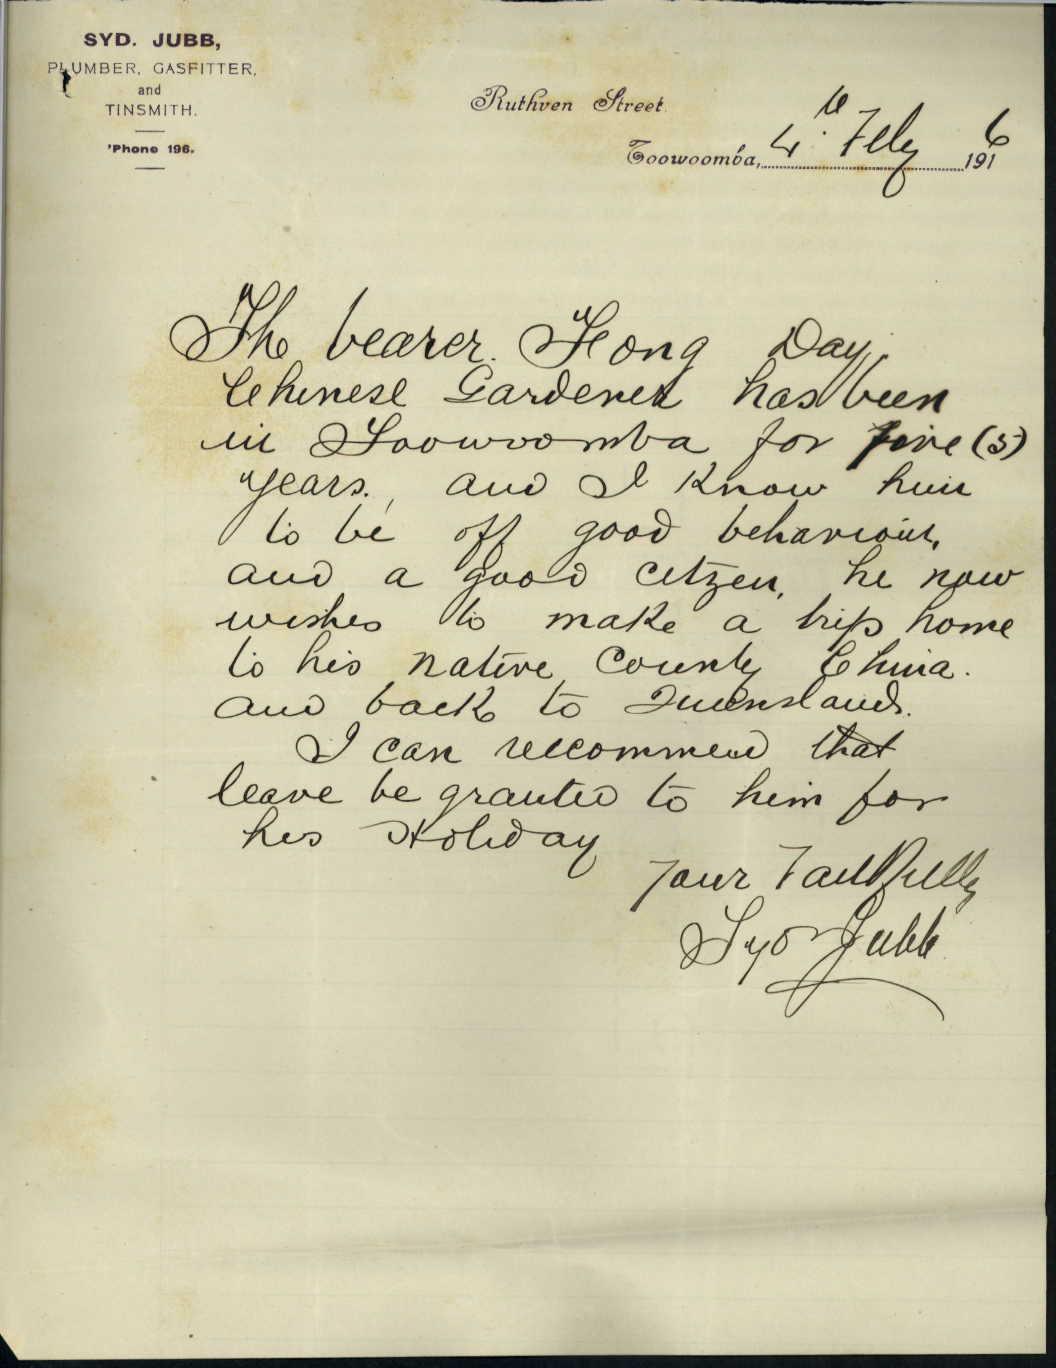 SYD. JUBB,
PLUMBER, GASFITTER,
and
TINSMITH.
'Phone 196.
Ruthven Street.
Toowoomba, 4th Feby 1916
The bearer. Fong Day.
Chinese Gardener has been
in Toowoomba for five (5)
years., and I know him
to be off good behaviour,
and a good citzen, he now
wishes to make a trip home
to his native county China.
and back to Queensland.
I can reccommend that
leave be granted to him for
his Holiday
Your Faithfully
Syd Jubb